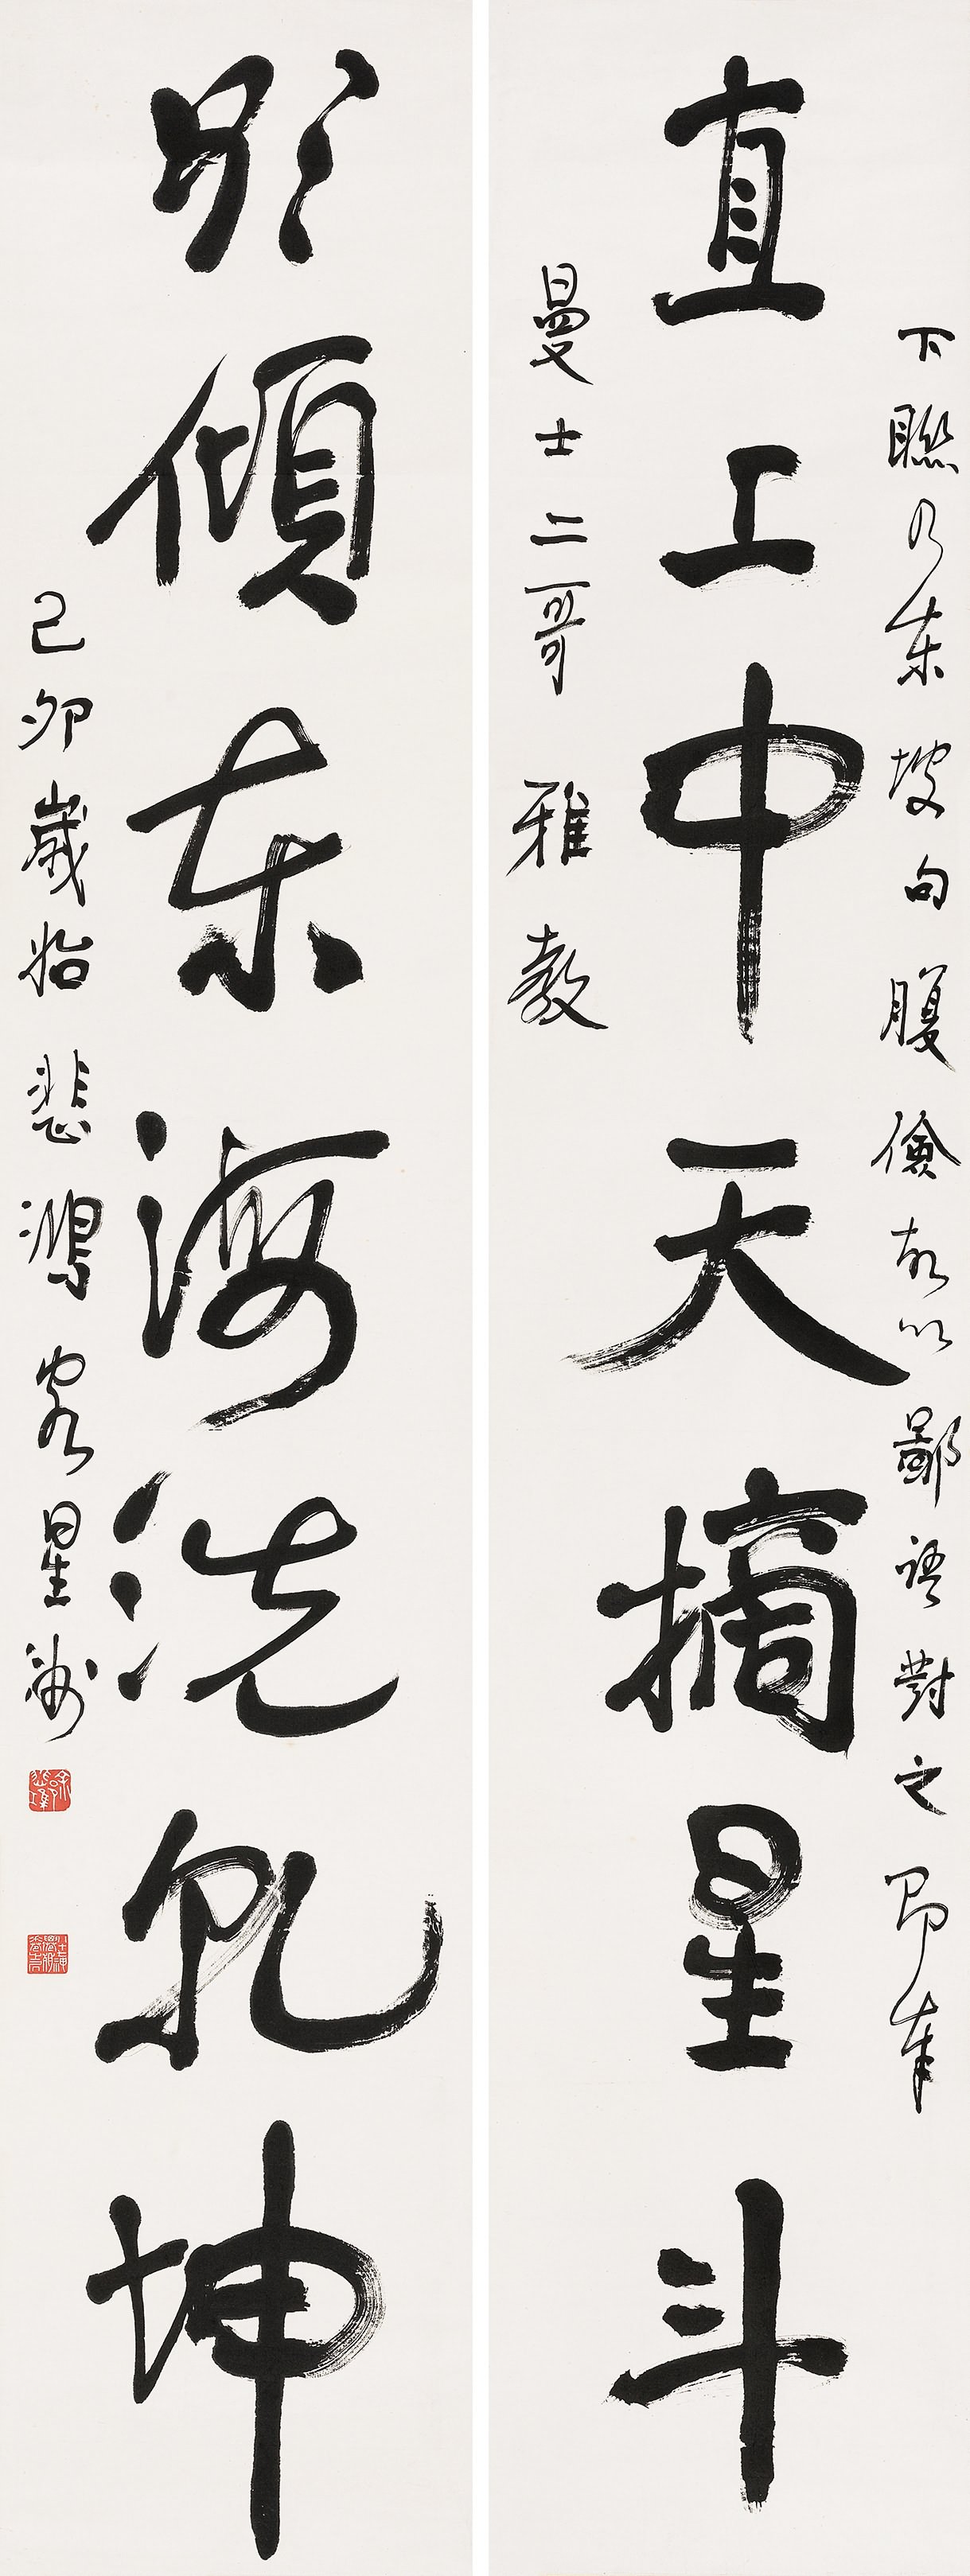 下聯乃東坡句腹儉故以鄙語對之即奉
直上中天摘星斗
曼士二哥雅教
欲傾東海洗乾坤
己卯歲始悲鴻客星洲